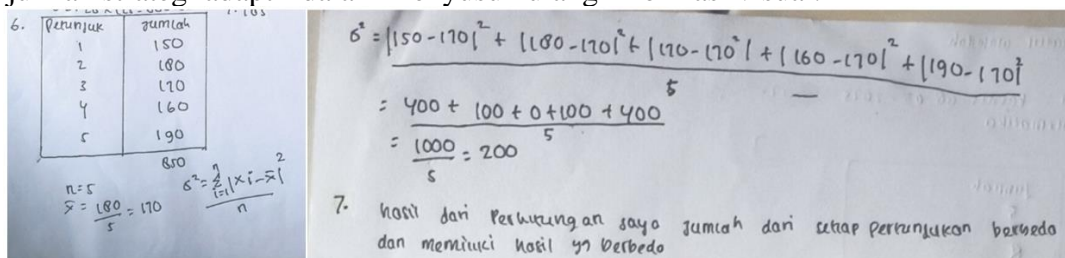 6.
Petunjuk Jumlah
1 150
2 180
3 170
4 160
5 190
850
n = 5
x̄ = 180/5 = 170
σ² = Σ |xi - x̄|² / n
i=1
σ² = |150-170|² + |180-170|² + |170-170²| + |160-170|² + |190-170|² / 5
= 400 + 100 + 0 + 100 + 400 / 5
= 1000/5 = 200
7. hasil dari perhitungan saya jumlah dari setiap pertunjukan berbeda
dan memiliki hasil yg berbeda